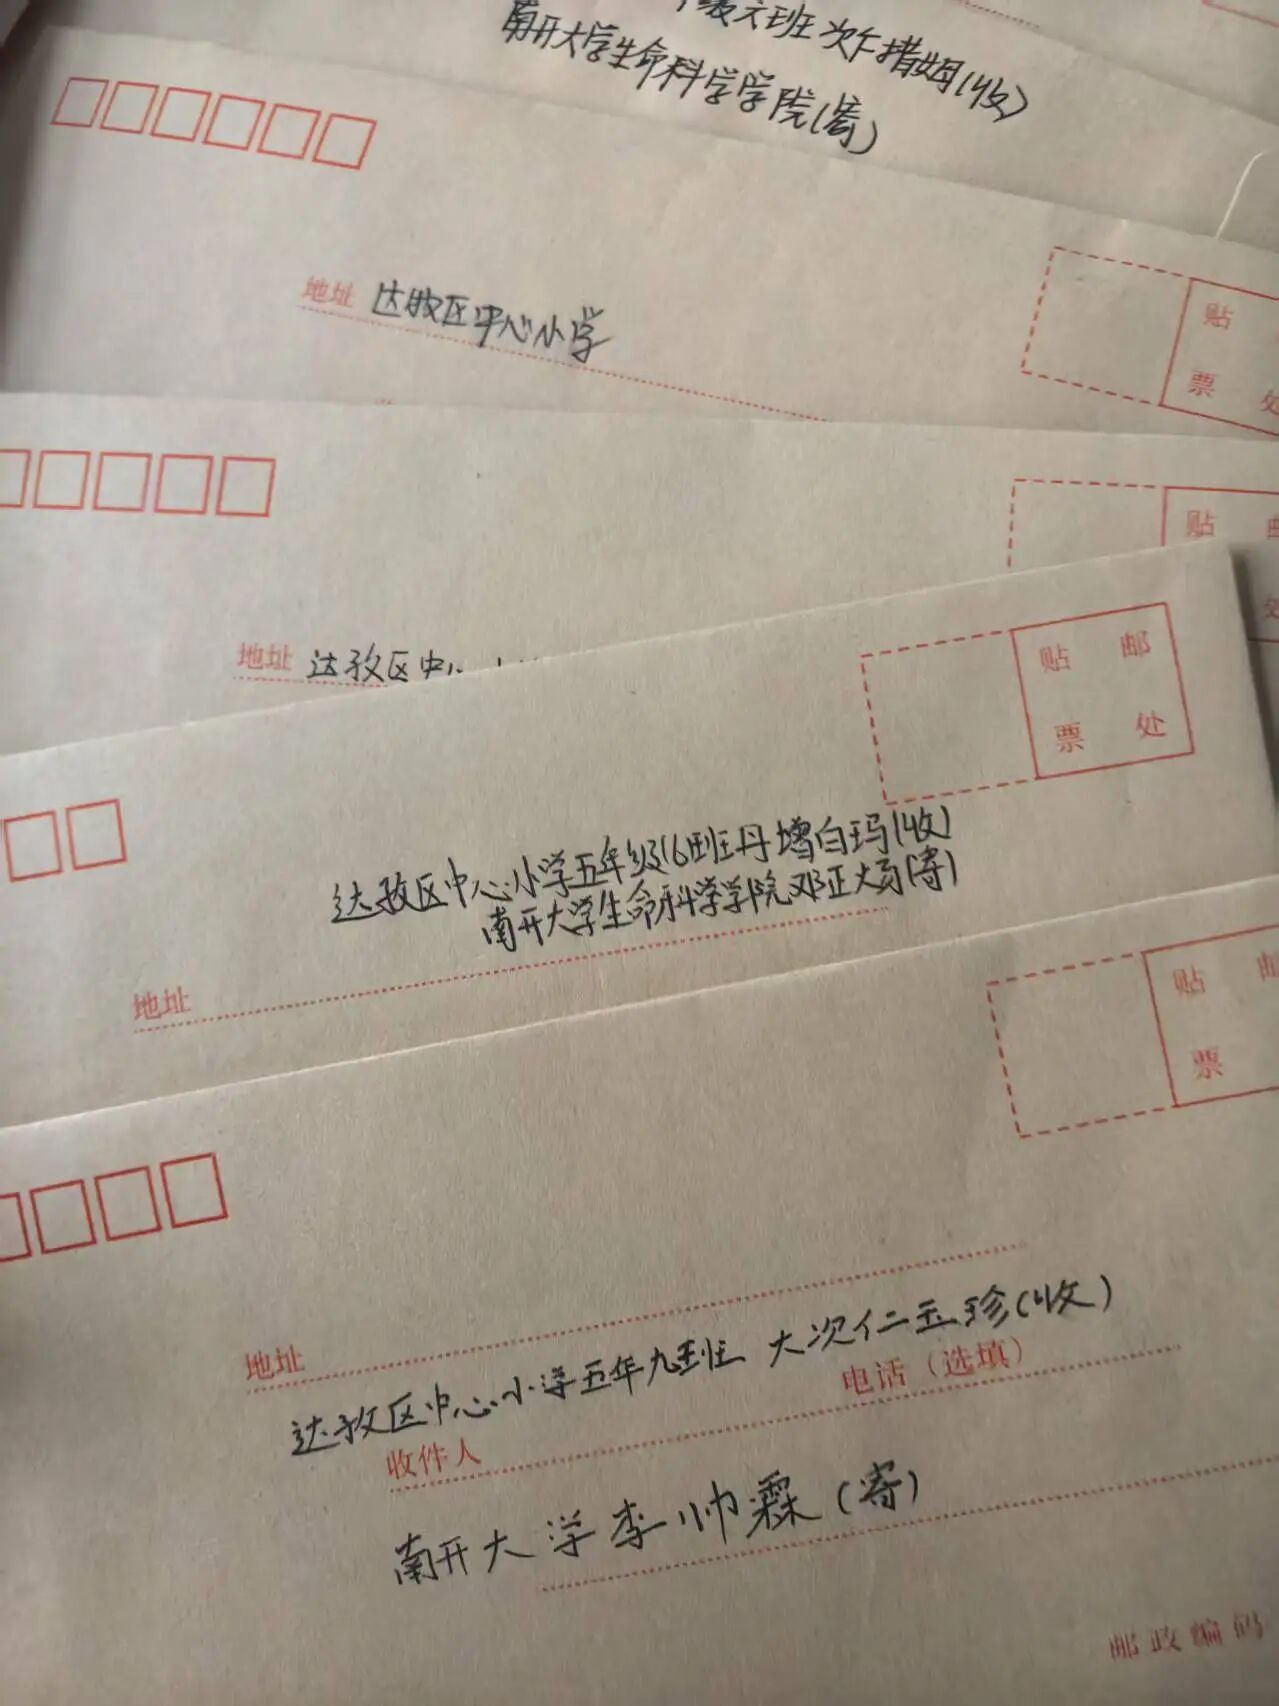 级六班次仁措姆(收)
南开大学生命科学学院(寄)
地址 达孜区中心小学
贴
票 处
贴 邮
处
地址 达孜区中心
贴 邮
票 处
达孜区中心小学五年级(6)班丹增白玛(收)
南开大学生命科学学院邓正(寄)
地址
贴 邮
票
地址
达孜区中心小学五年九班 大次仁玉珍(收)
电话（选填）
收件人
南开大学李帅霖(寄)
邮政编码